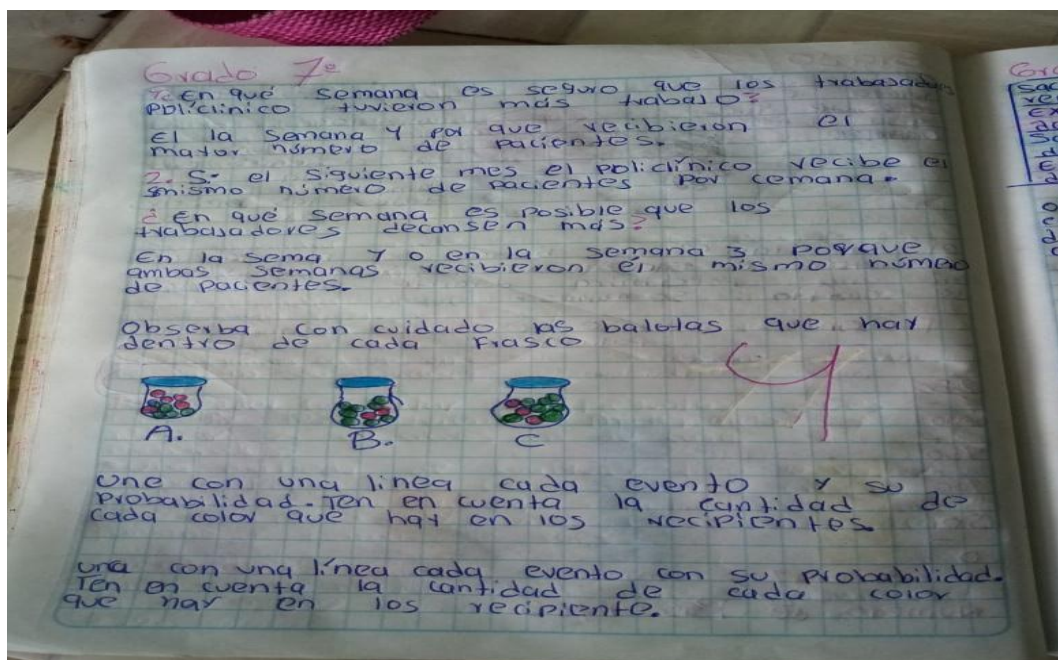 Grado 7º
1. ¿En qué semana es seguro que los trabajadores
policlínico tuvieron más trabajo?
El la semana 4 por que recibieron el
mayor número de pacientes.
2. Si el siguiente mes el policlínico recibe el
mismo número de pacientes por cemana.
¿En qué semana es posible que los
trabajadores decansen más?
En la sema 1 o en la semana 3 porque
ambas semanas recibieron el mismo número
de pacientes.
Obserba con cuidado las balotas que hay
dentro de cada Frasco
A. B. C
Une con una línea cada evento y su
probabilidad. Ten en cuenta la cantidad de
cada color que hay en los recipientes.
una con una línea cada evento con su probabilidad.
Ten en cuenta la cantidad de cada color
que hay en los recipiente.